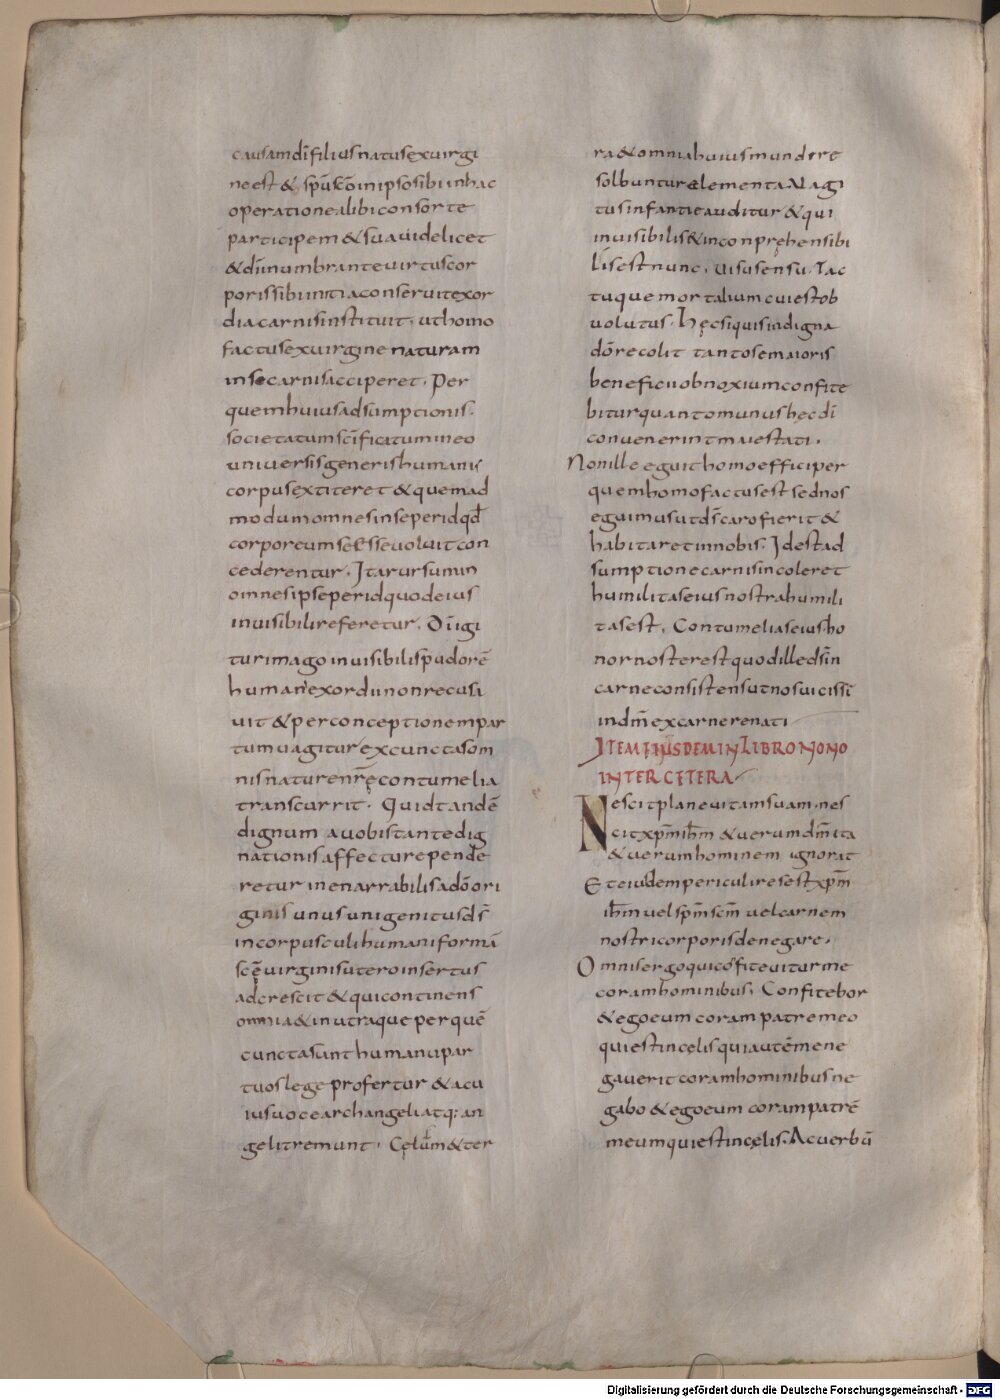 causam dī filius natus ex virgi
ne est & sp̄u sc̄o in ipso sibi in hac
operatione alibi consorte
participem & sua videlicet
& dī inumbrante virtus cor
poris sibi initia conseruit exor
dia carnis instituit. ut homo
factus ex virgine naturam
in se carnis acciperet. Per
quem huius adsumptionis.
societatum scīficatum in eo
universis generis humani
corpus extiteret & quemad
modum omnes in se per id qđ
corporeum se esse voluit con
cederentur. Ita rursum in
omnes ipse per id quod eius
invisibili referetur. Dī igi
tur imago invisibilis pudorē
humani exordii non recusa
vit & per conceptionem par
tum vagitur ex cunctas om
nis naturę nr̄ę contumelia
transcurrit. Quid tandē
dignum a vobis tante dig
nationis affectu repende
retur inenarrabilis a dō ori
ginis unus unigenitus dī s̄
in corpusculi humani formā
scę̄ virginis utero insertus
adcrescit & qui continens
omnia & in utraque per quē
cuncta sunt humani par
tuos lege profertur & a cu
ius voce archangeli atq; an
geli tremunt. Cęlum & ter
ra & omnia huius mundi re
solbuntur elementa vagi
tus infantie auditur & qui
invisibilis & inconprehensibi
lis est nunc. visu sensu. tac
tuque mortalium cui est ob
volutus. hęc si quis indigna
dō recolit tanto se maioris
beneficii obnoxium confite
bitur quanto munus hęc dī
convenerint maiestati.
Non ille eguit homo effici per
quem homo factus est sed nos
eguimus ut ds̄ caro fierit &
habitaret in nobis. Id est ad
sumptione carnis incoleret
humilitas eius nostra humili
tas est. Contumelias eius ho
nor noster est quod ille ds̄ in
carne consistens ut nos vicissī
in dm̄ ex carne renati
ITEM EIUSDEM IN LIBRO NONO
INTER CETERA
Nescit plane vitam suam. nes
cit xp̄m ih̄m & verum dm̄ ita
& verum hominem ignorat
Et eiusdem periculi res est xp̄m
ih̄m vel sp̄m sc̄m vel carnem
nostri corporis denegare.
Omnis ergo qui cōfitevitur me
coram hominibus. Confitebor
& ego eum coram patre meo
qui est in cęlis qui autē me ne
gaverit coram hominibus ne
gabo & ego eum coram patrē
meum qui est in cęlis. Ac verbū
Digitalisierung gefördert durch die Deutsche Forschungsgemeinschaft - DFG